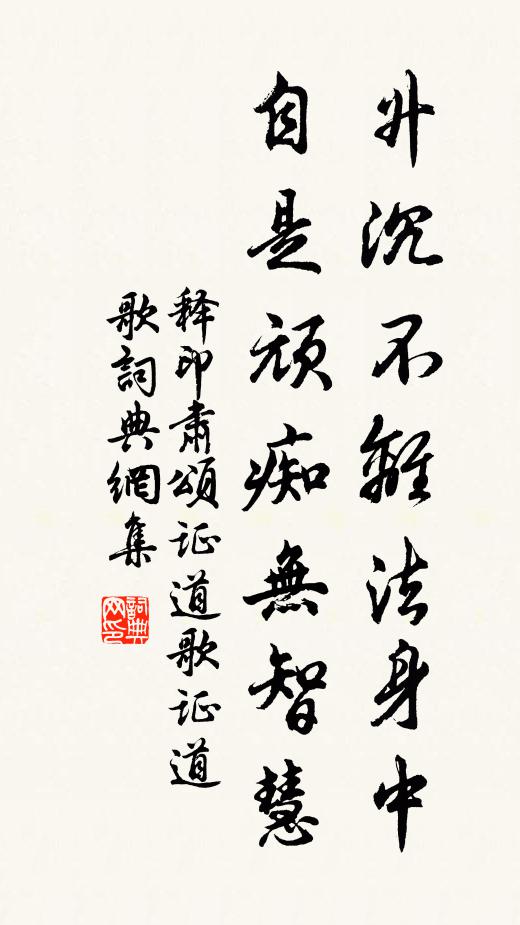 升沉不離法身中
自是頑痴無智慧
释印肃頌证道歌证道
歌詞典網集
詞典网印